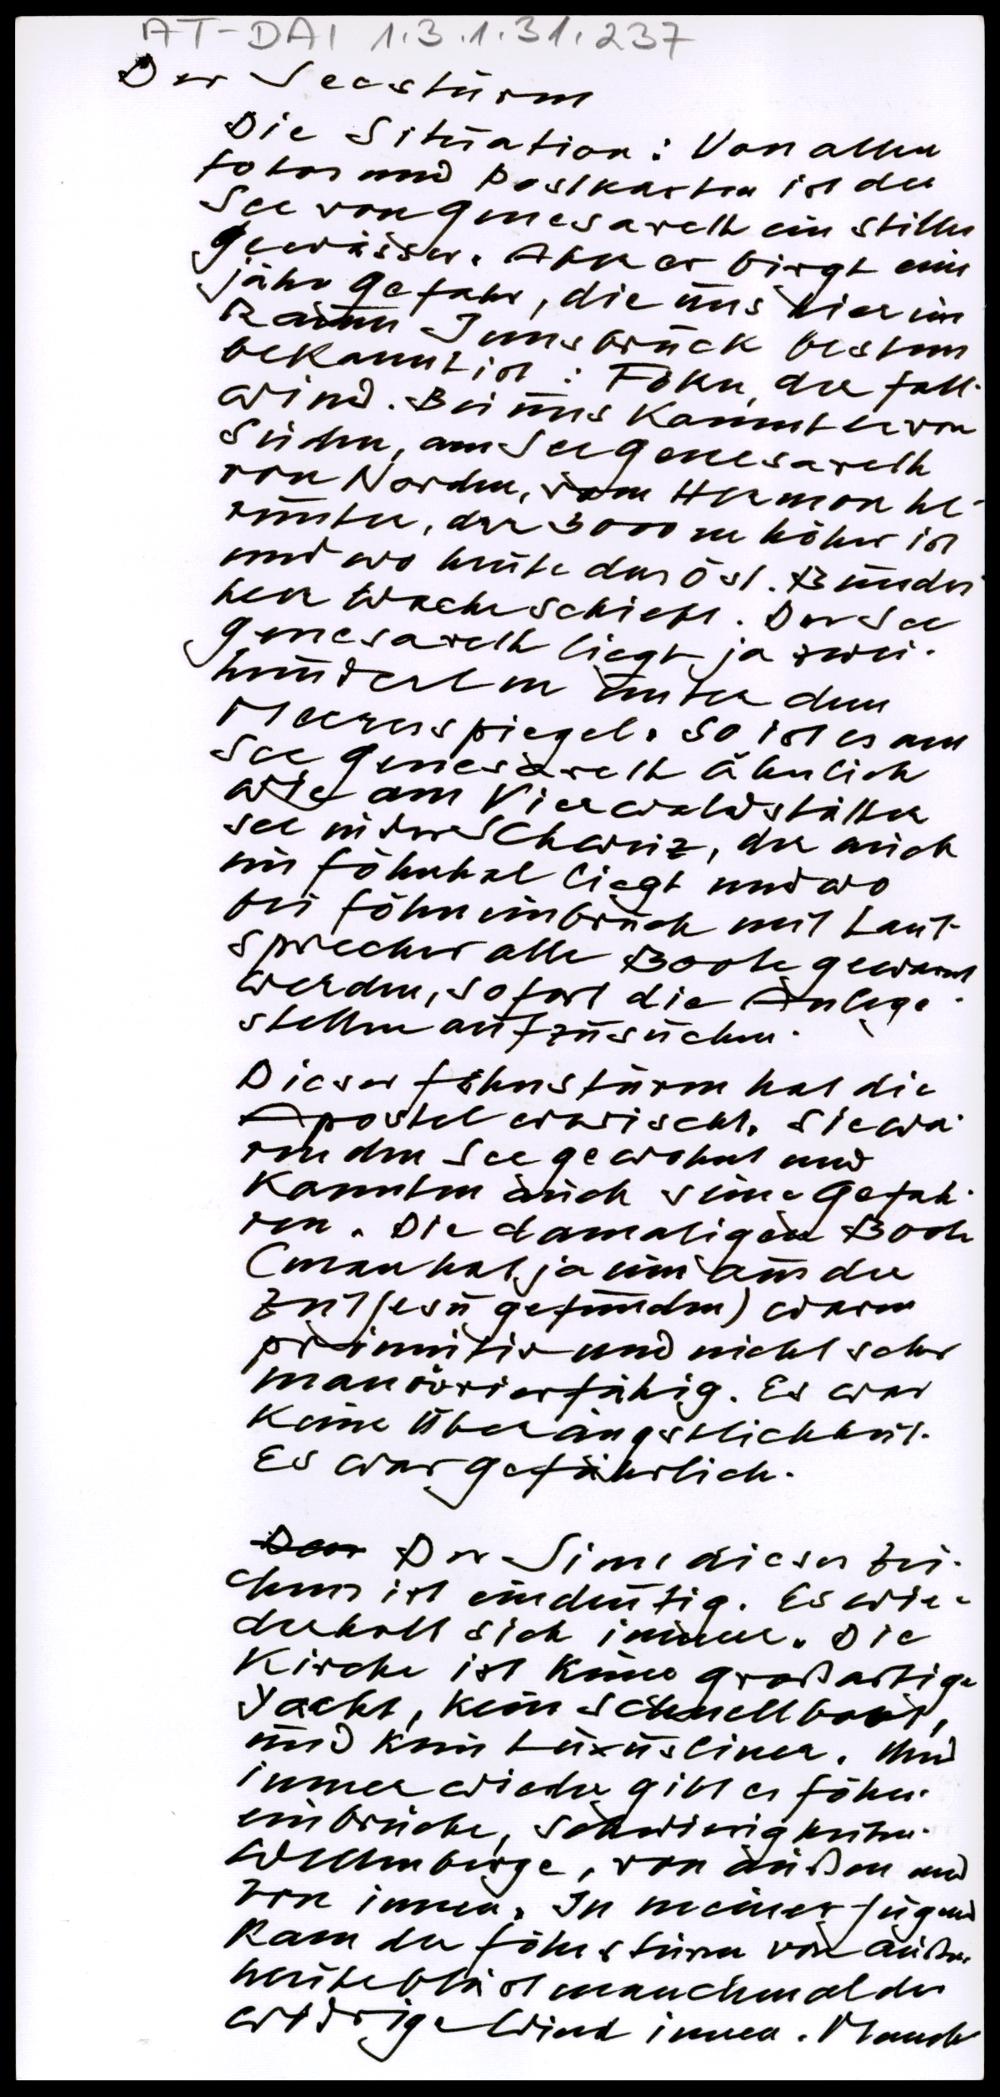 AT-DAI 1.3.1.31.237
Der Seesturm
Die Situation: Von allen
Fotos und Postkarten ist der
See von Genesareth ein stilles
Gewässer. Aber er birgt eine
jähe Gefahr, die uns hier im
Raum Innsbruck bestens
bekannt ist: Föhn, der Fall-
wind. Bei uns kommt er von
Süden, am See Genesareth
von Norden, vom Hermon he-
runter, der 3000 m höher ist
und wo heute das öst. Bundes
heer Wache schiebt. Der See
Genesareth liegt ja zwei-
hundert m unter dem
Meeresspiegel. So ist es am
See Genesareth ähnlich
wie am Vierwaldstätter
see in der Schweiz, der auch
im Föhntal liegt und wo
bei Föhneinbruch mit Laut-
sprecher alle Boote gewarnt
werden, sofort die Anlege-
stellen aufzusuchen.
Dieser Föhnsturm hat die
Apostel erwischt. Sie wa-
ren den See gewohnt und
kannten auch seine Gefah-
ren. Die damaligen Boote
(man hat ja eins aus der
Zeit Jesu gefunden) waren
primitiv und nicht sehr
manövrierfähig. Es war
keine Überängstlichkeit.
Es war gefährlich.
Der Sinn dieses Zei-
chens ist eindeutig. Es wie-
derholt sich immer. Die
Kirche ist keine großartige
Yacht, kein Schnellboot,
und kein Luxusliner. Und
immer wieder gibt es Föhn-
einbrüche, Schwierigkeiten-
Wellenberge, von außen und
von innen. In meiner Jugend
kam der Föhnsturm von außen
heute bläst manchmal der
widrige Wind innen. Manch